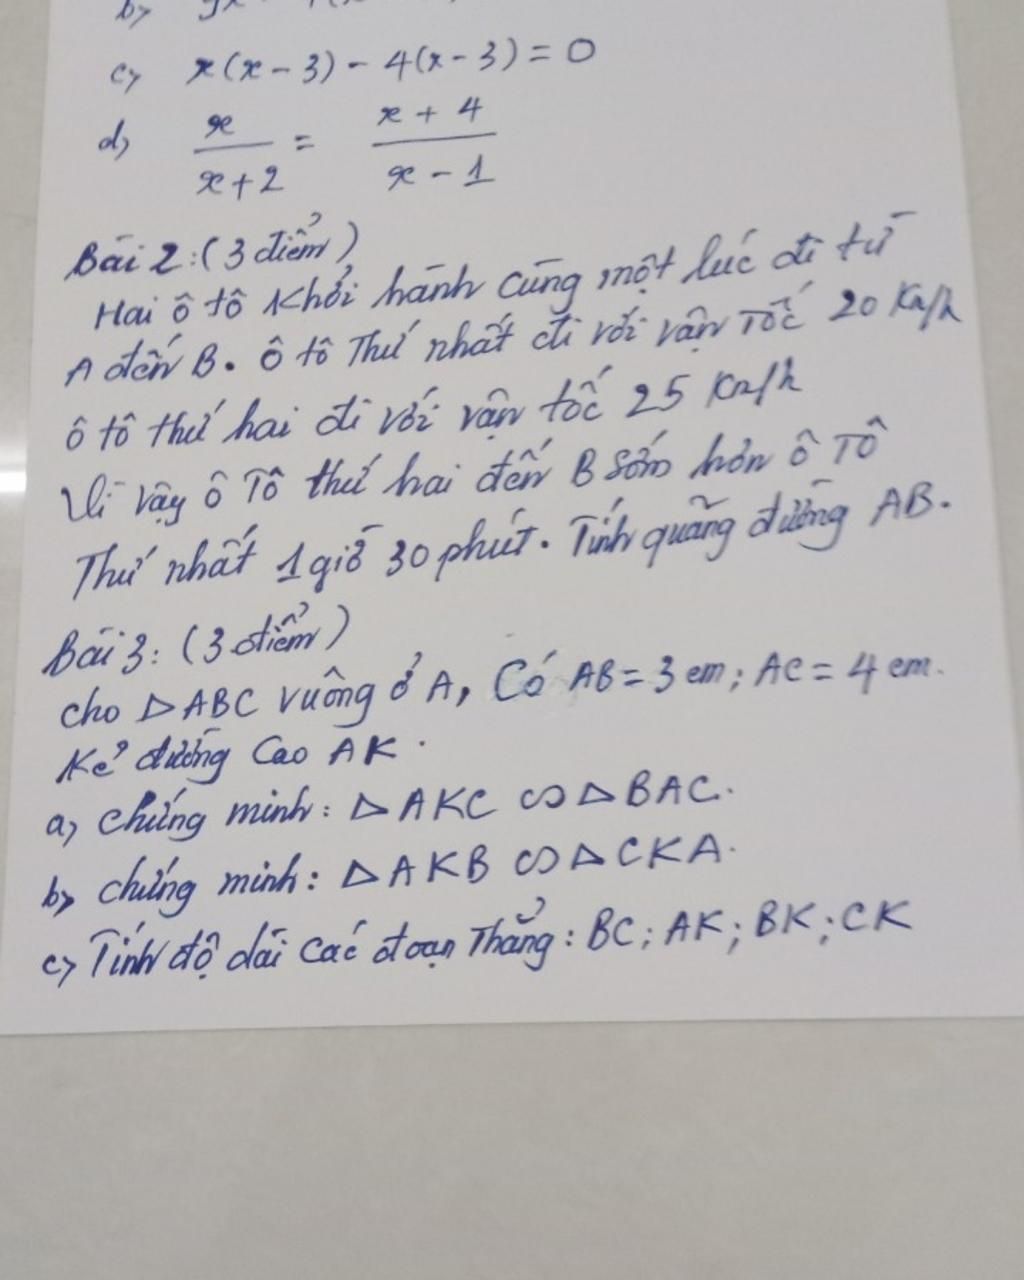 b,
c, x(x - 3) - 4(x - 3) = 0
d, x/(x + 2) = (x + 4)/(x - 1)
Bài 2: (3 điểm)
Hai ô tô khởi hành cùng một lúc đi từ
A đến B. Ô tô Thứ nhất đi với vận tốc 20 Km/h
ô tô thứ hai đi với vận tốc 25 Km/h
Vì vậy ô Tô thứ hai đến B sớm hơn ô Tô
Thứ nhất 1 giờ 30 phút. Tính quãng đường AB.
Bài 3: (3 điểm)
cho △ABC vuông ở A, Có AB = 3 cm; AC = 4 cm.
Kẻ đường Cao AK.
a, chứng minh: △AKC ∽ △BAC.
b, chứng minh: △AKB ∽ △CKA.
c, Tính độ dài các đoạn Thẳng: BC; AK; BK; CK